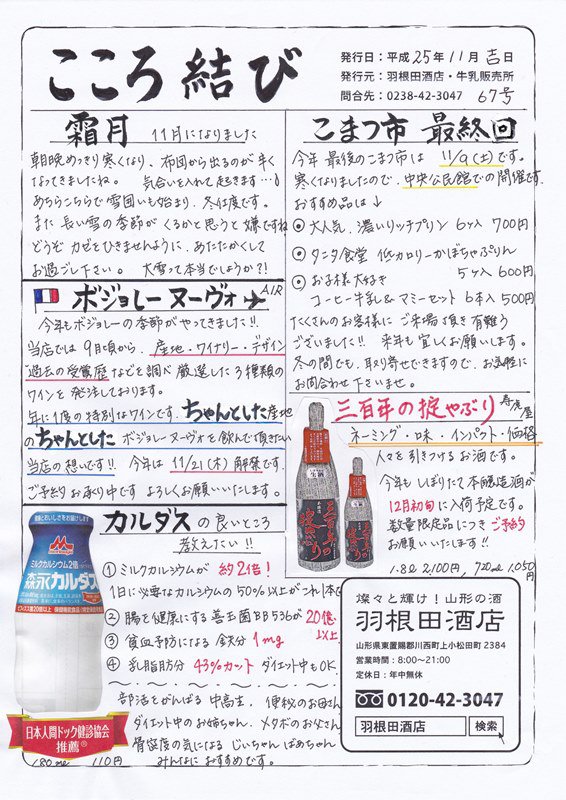 こころ結び
発行日：平成25年11月吉日
発行元：羽根田酒店・牛乳販売所
問合先：0238-42-3047 67号
霜月 11月になりました
朝晩めっきり寒くなり、布団から出るのが辛く
なってきましたね。 気合いを入れて起きます…!
あちらこちらで雪囲いも始まり、冬仕度です。
また長い雪の季節がくるかと思うと嫌ですね
どうぞカゼをひきませんように、あたたかくして
お過ごし下さい。 大雪って本当でしょうか?!
こまつ市 最終回
今年最後のこまつ市は 11/9(土)です。
寒くなりましたので、中央公民館での開催です.
おすすめ品は↓
大人気、濃いリッチプリン 6ヶ入 700円
タニタ食堂 低カロリーかぼちゃぷりん
5ヶ入 600円
お子様大好き
コーヒー牛乳&マミーセット 6本入 500円
たくさんのお客様に ご来場頂き有難う
ございました!! 来年も宜しくお願いします。
冬の間でも、取り寄せできますので、お気軽に
お問合わせ下さいませ。
ボジョレーヌーヴォ AIR
今年もボジョレーの季節がやってきました!!
当店では9月頃から、産地・ワイナリー・デザイン
過去の受賞歴などを調べ厳選した3種類の
ワインを発注しております。
年に1度の特別なワインです。ちゃんとした産地
のちゃんとしたボジョレーヌーヴォを飲んで頂きたい
当店の想いです!! 今年は 11/21(木)解禁です.
ご予約お承り中です よろしくお願いいたします。
三百年の掟やぶり 寿虎屋
ネーミング・味・インパクト・価格
人々を引きつけるお酒です。
今年もしぼりたて本醸造酒が
12月初旬に入荷予定です。
数量限定品につきご予約
お願いいたします!!
1.8L 2,100円, 720ml 1,050円
生酒
三百年の掟やぶり
カルダスの良いところ
教えたい!!
① ミルクカルシウムが 約2倍!
1日に必要なカルシウムの50%以上がこれ1本
② 腸を健康にする善玉菌BB536が20億以上
③ 貧血予防になる 鉄分 1mg
④ 乳脂肪分 43%カット ダイエット中もOK
部活をがんばる中高生、便秘のお母さん
ダイエット中のお姉ちゃん、メタボのお父さん
骨密度の気になる じいちゃんばあちゃん
みんなにおすすめです。
ミルクカルシウム2倍
森永カルダス
日本人間ドック健診協会
推薦®
180ml 110円
燦々と輝け！山形の酒
羽根田酒店
山形県東置賜郡川西町上小松田町2384
営業時間：8:00～21:00
定休日：年中無休
0120-42-3047
羽根田酒店 検索